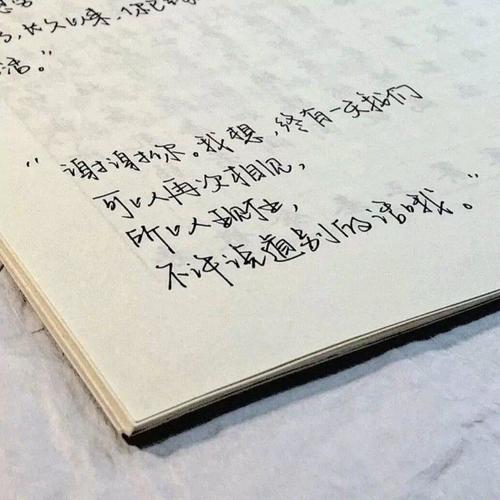 ，长久以来，你已
活。”
“谢谢你。我想，终有一天我们
可以再次相见，
所以现在，
不许说道别的话哦。”